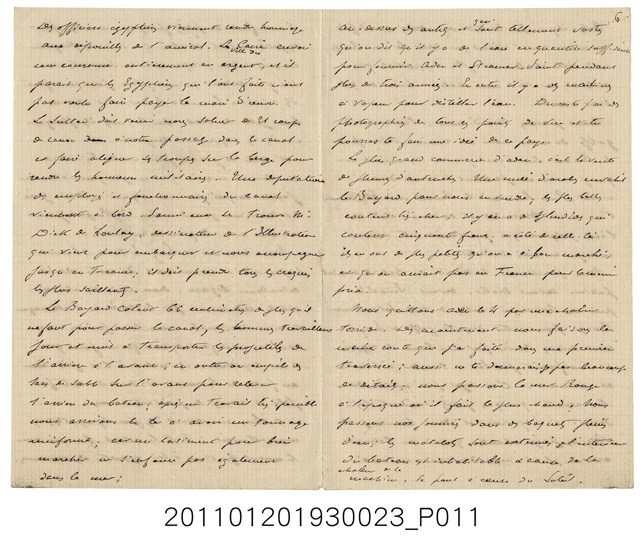 Des officiers égyptiens viennent rendre hommage
aux dépouilles de l'amiral. Le Caire envoie
ville du
une couronne entièrement en argent, et il
parait que les Egyptiens qui l'ont faite n'ont
pas voulu faire payer la main d'œuvre.
Le Sultan doit venir nous saluer de 21 coups
de canon dans à notre passage dans le canal
et faire aligner les troupes sur la berge pour
rendre les honneurs militaires. Une députation
des employés et fonctionnaires du canal
viendront à bord. Samedi
Dick de Lonlay, dessinateur de l'Illustration
qui vient pour embarquer et nous accompagner
jusqu'en France, il doit prendre tous les croquis
les plus saillants.
Le Bayard calant 66 centimètres de plus qu'il
ne faut pour passer le canal, les hommes travaillent
jour et nuit à transporter les projectiles de
l'arrière à l'avant; en outre on empile des
sacs de sable sur l'avant pour relever
l'arrière du bateau, après un travail très pénible
nous arrivons le 20 à avoir un tonnage
uniforme; car un bâtiment pour bien
marcher ne s'enfonce pas également
dans la mer;
6
au-dessus des autres et qui sont tellement vastes
qu'on dit qu'il y a de l'eau en quantité suffisante
pour fournir Aden et Steamer Point pendant
plus de trois années. En outre il y a des machines
à vapeur pour distiller l'eau. Du reste j'ai des
photographies de tous ces points de vue et tu
pourras te faire une idée de ce pays.
Le plus grand commerce d'Aden, c'est la vente
de plumes d'autruches. Une nuée d'arabes envahit
le Bayard pour nous en vendre; les plus belles
coûtent très cher; il y en a de splendides qui
coûtent cinquante francs, à côté de celles-là
il y en a de plus petites qu'on a à bon marché
et qu'on aurait pas en France pour le même
prix.
Nous quittons Aden le 4 par une chaleur
torride. Dès maintenant nous faisons la
même route que j'ai faite dans ma première
traversée; aussi je ne te donnerai pas beaucoup
de détails; nous passons la mer Rouge
à l'époque où il fait le plus chaud. Nous
passons nos journées dans des baquets pleins
d'eau; les matelots sont exténués, l'intérieur
du bateau est inhabitable à cause de la
chaleur de la
machine, le pont à cause du Soleil.
201101201930023_P011